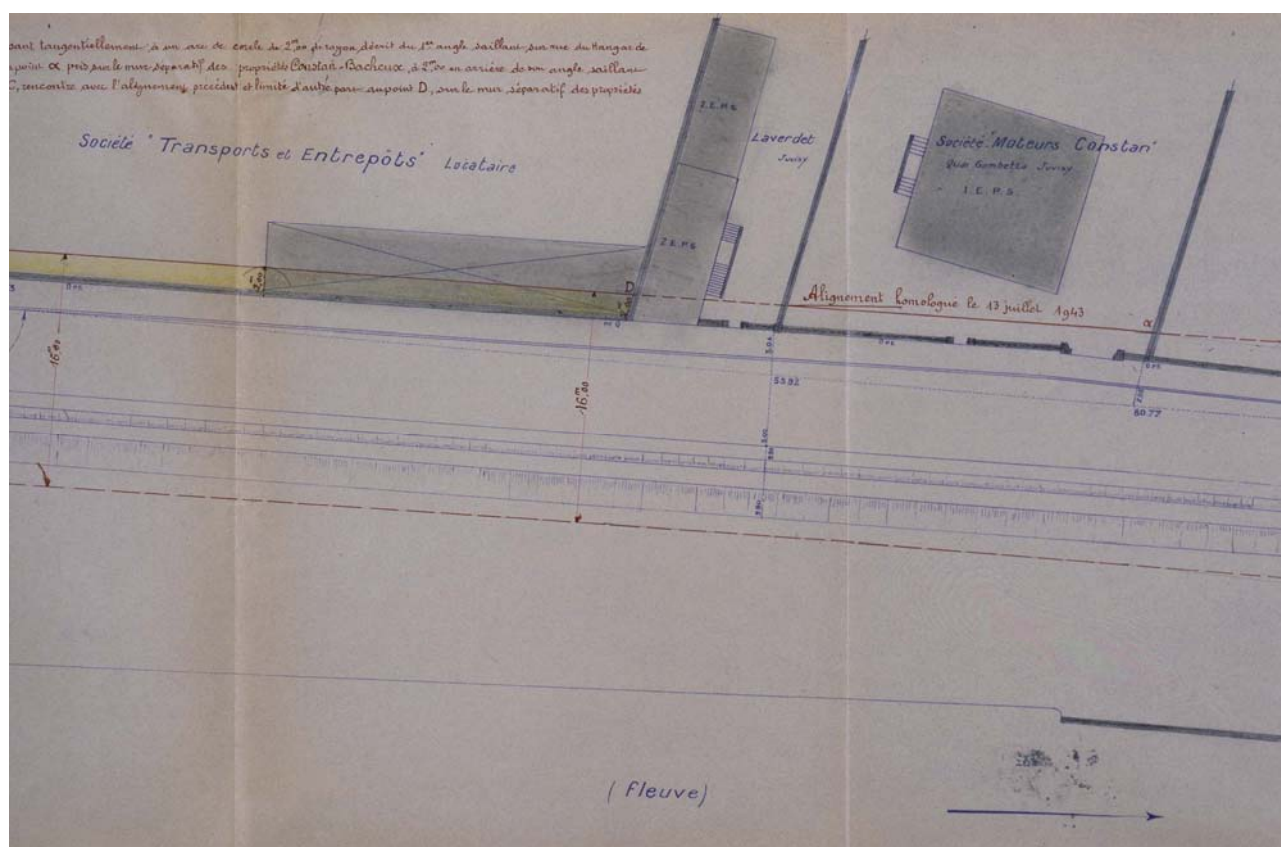 sant tangentiellement, à un arc de cercle de 2m00 de rayon, décrit du 1er angle saillant, sur rue du Hangar de
point α pris sur le mur séparatif des propriétés Constan-Bacheux, à 2m00 en arrière de son angle saillant
C, rencontre avec l'alignement précédent et limité d'autre part au point D, sur le mur séparatif des propriétés
Société "Transports et Entrepôts" Locataire
2.E.P.G
Laverdet
Juvisy
Société "Moteurs Constan"
Quai Gambetta Juvisy
1.E.P.S.
2.E.P.G
2.00
D
Alignement homologué le 13 juillet 1943
α
16m,00
16m,00
55.92
60.77
5.00
(fleuve)